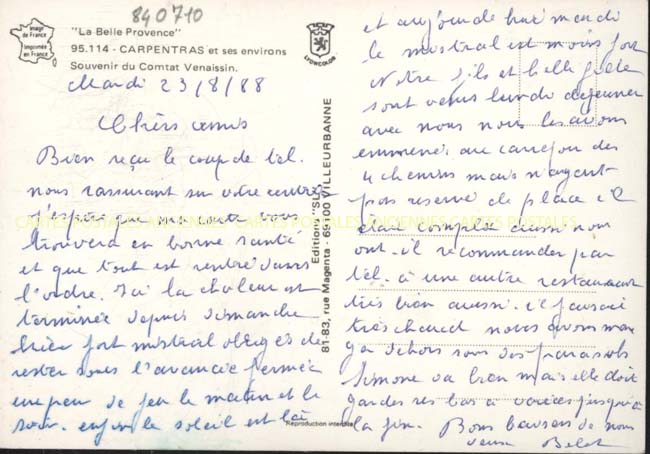 840710
Image
de France
Imprimée
en France
"La Belle Provence"
95.114 - CARPENTRAS et ses environs
Souvenir du Comtat Venaissin.
LYONCOLOR
Mardi 23/8/88
Chers amis
Bien reçu le coup de tél.
nous rassurant sur votre rentrée
j'espère que ma carte vous
trouvera en bonne santé
et que tout est rentré dans
l'ordre. Ici la chaleur est
terminée depuis dimanche
hier fort mistral obligés de
rester sous l'avancée fermée
un peu de feu le matin et le
soir. enfin le soleil est là
Editions "SL"
81-83, rue Magenta - 69100 VILLEURBANNE
Reproduction interdite
et aujourd hui mardi
le mistral est moins fort
Notre fils et belle fille
sont venus lundi déjeuner
avec nous nous les avions
emmenés au carrefou des
4 chemins mais n'ayant
pas reservé de place il
était complet aussi nous
ont-il recommander par
tél. à une autre restaurant
très bien aussi. il faisait
très chaud nous avons man
gé dehors sous des parasols
Simone va bien mais elle doit
garder ses bas à varices jusqu'à
la fin. Bons baisers de nous
deux
CARTES POSTALES ANCIENNES CARTES POSTALES